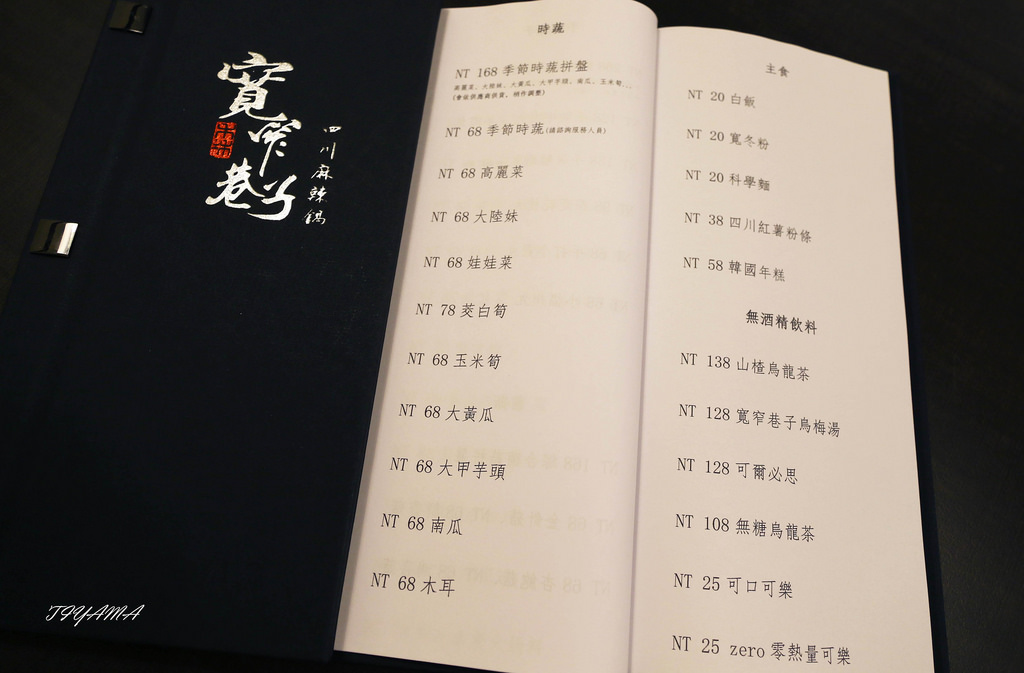 寬窄巷子
四川麻辣鍋
時蔬
NT 168 季節時蔬拼盤
高麗菜、大陸妹、大黃瓜、大甲芋頭、南瓜、玉米筍...
(會依供應商供貨，稍作調整)
NT 68 季節時蔬(請諮詢服務人員)
NT 68 高麗菜
NT 68 大陸妹
NT 68 娃娃菜
NT 78 茭白筍
NT 68 玉米筍
NT 68 大黃瓜
NT 68 大甲芋頭
NT 68 南瓜
NT 68 木耳
主食
NT 20 白飯
NT 20 寬冬粉
NT 20 科學麵
NT 38 四川紅薯粉條
NT 58 韓國年糕
無酒精飲料
NT 138 山楂烏龍茶
NT 128 寬窄巷子烏梅湯
NT 128 可爾必思
NT 108 無糖烏龍茶
NT 25 可口可樂
NT 25 zero 零熱量可樂
TIYAMA